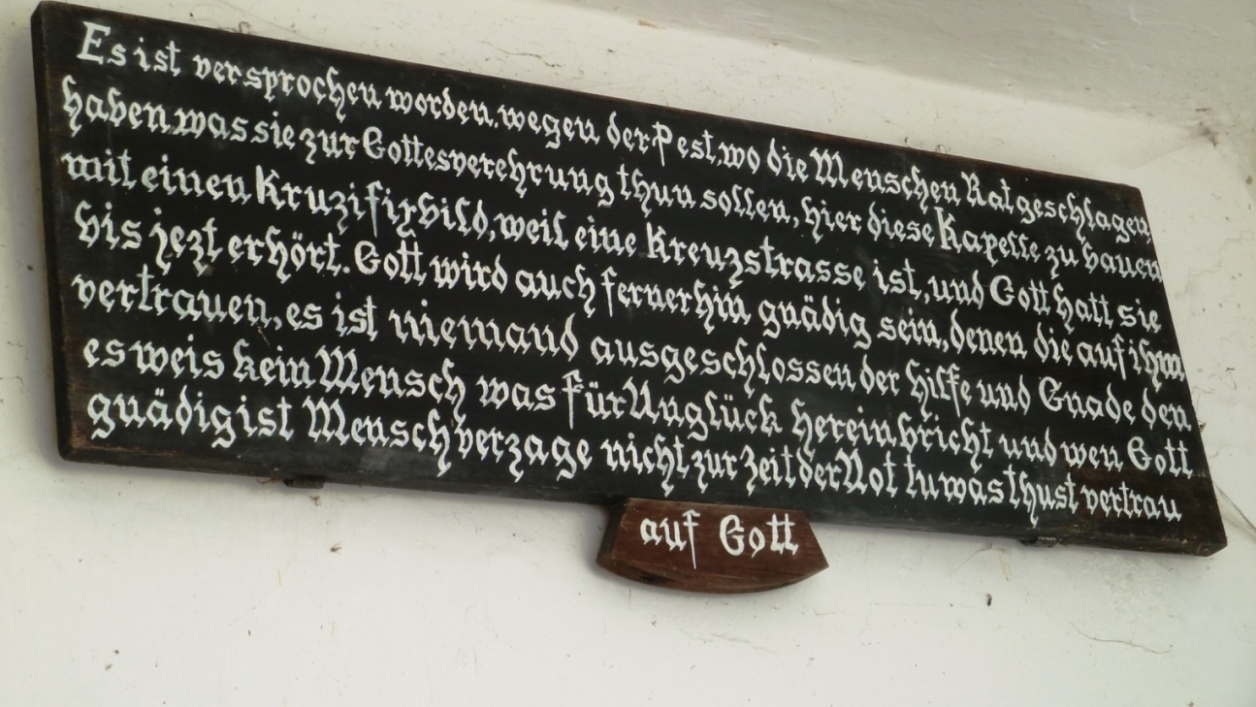 Es ist versprochen worden, wegen der Pest, wo die Menschen Rat geschlagen,
haben, was sie zur Gottesverehrung thun sollen, hier diese Kapelle zu bauen
mit einen Kruzifixbild, weil eine Kreuzstrasse ist, und Gott hatt sie
bis jezt erhört. Gott wird auch fernerhin gnädig sein, denen die auf ihm
vertrauen, es ist niemand ausgeschlossen der Hilfe und Gnade den
es weis kein Mensch was für Unglück hereinbricht und wen Gott
gnädig ist Mensch verzage nicht zur Zeit der Not tu was thust vertrau
auf Gott